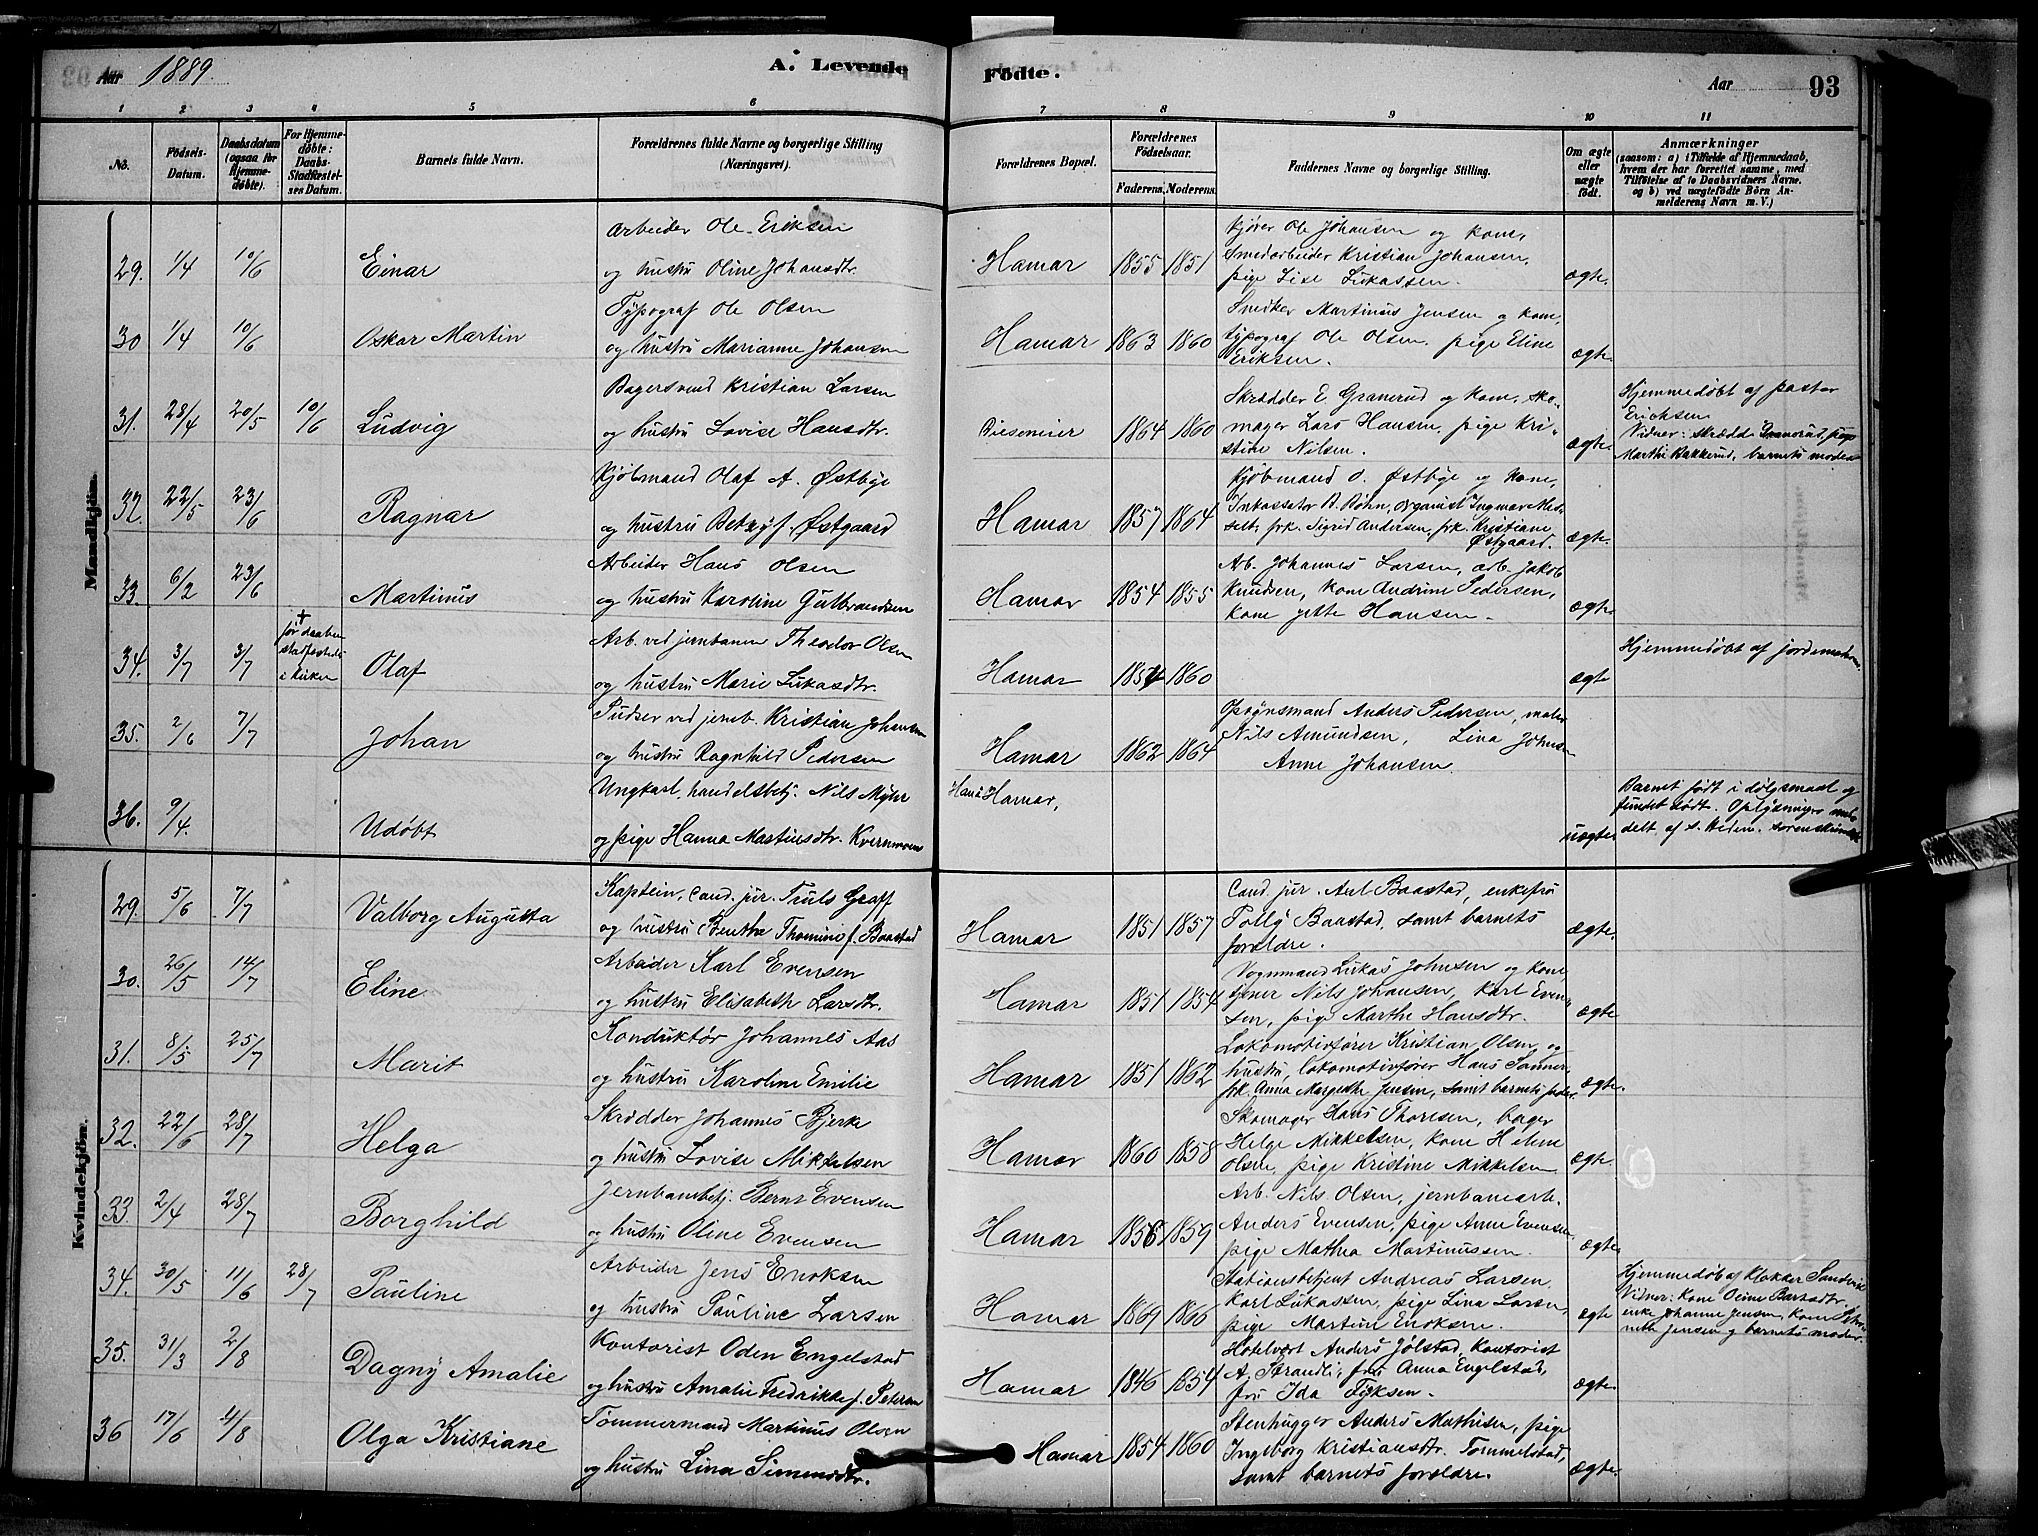 Aar 1889. A. Levende Fødte. Aar 93
1 2 3 4 5 6 7 8 9 10 11
No. Fødsels-Datum. Daabsdatum (ogsaa for Hjemmedøbte). For Hjemmedøbte: Daabs-Stadfæstelses Datum. Barnets fulde Navn. Forældrenes fulde Navne og borgerlige Stilling (Næringsvei). Forældrenes Bopæl. Forældrenes Fødselsaar. Faderens. Moderens. Faddernes Navne og borgerlige Stilling. Om ægte eller uægte født. Anmærkninger (saasom: a) i Tilfælde af Hjemmedaab, hvem der har forrettet samme, med Tilføielse af to Daabsvidners Navne, og b) ved uægtefødte Børn Anmelderens Navn m. V.)
Mandkjøn.
29. 1/4 10/6 Einar
Arbeider Ole Eriksen
og hustru Oline Johansdtr.
Hamar 1855 1851
Kjører Ole Johansen og kone,
Smedarbeider Kristian Johansen,
pige Lise Lukassen.
ægte.
30 1/4 10/6 Oskar Martin
Typograf Ole Olsen
og hustru Marianne Johansen
Hamar 1863 1860
Snedker Martinus Jensen og kone,
typograf Ole Olsen, pige Eline
Eriksen.
ægte.
31. 28/4 20/5 10/6 Ludvig
Bagersvend Kristian Larsen
og hustru Lovise Hansdtr.
1864 1860
Skrædder E Granerud og kone, sko-
mager Lars Hansen, pige Kri-
stine Nilsen.
ægte.
Hjemmedøbt af pastor
Erichsen
Vidner: skrædd. Granerud, pige
Marthe Bakkerud, barnets moder
32. 22/5 23/6 Ragnar
Kjøbmand Olaf A. Østbye
og hustru Betzy f. Østgaard
Hamar 1857 1864
Kjøbmand O. Østbye og kone,
Inkassator B. Bøhn, organist Ingmar
frk. Sigrid Andersen, frk. Kristiane
Østgaard.
ægte.
33. 6/2 23/6 Martinus
Arbeider Hans Olsen
og hustru Karoline Gulbrandsen
Hamar 1854 1855
Arb. Johannes Larsen, arb. Jakob
Knudsen, kone Andrine Pedersen,
kone Jette Hansen.
ægte
34. 3/7 3/7
+
før daaben
stadfestedes
i kirken
Olaf
Arb. ved jernbanen Theodor Olsen
og hustru Marie Lukasdtr.
Hamar 1854 1860
ægte
Hjemmedøbt af jordemoderen
35. 2/6 7/7 Johan
Pudser ved jernb. Kristian Johansen
og hustru Ragnhild Pedersen
Hamar 1862 1864
Opsynsmand Anders Pedersen, maler
Nils Amundsen, Lina Johnsen
Anne Johansen.
36. 9/4. Udøbt
Ungkarl, handelsbetj. Nils Myhr
og pige Hanna Martinsdtr. Kvernmoen
Hamar,
uægte
Barnet født i dølgsmaal og
fundet dødt. Oplysninger med-
delt af
Kvindekjøn.
29. 5/6 7/7 Valborg Augusta
Kaptein, Cand. jur. Truls Graff
og hustru Benthe Thomine f. Baastad
Hamar 1851 1857
Cand. jur. Axl Baastad, enkefru
Polly Baastad, samt barnets
forældre.
ægte.
30. 26/5 14/7 Eline
Arbeider Karl Evensen
og hustru Elisabeth Larsdtr.
Hamar 1851 1854
Vognmand Lukas Johnsen og kone
tjener Nils Johansen, Karl Even-
sen, pige Marthe Hansdtr.
ægte
31. 8/5 25/7 Marit
Konduktør Johannes Aas
og hustru Karoline Emilie
Hamar 1851 1862
Lokomotivfører Kristian Olsen og
hustru, lokomotivfører Hans Sanner,
frk. Anna Margrethe Jensen, samt barnets fader.
ægte.
32. 22/6 28/7 Helga
Skrædder Johannes Bjerke
og hustru Lovise Mikkelsen
Hamar 1860 1858
Skomager Hans Thoresen, bager
Helge Mikkelsen, kone Helene
Olsen, pige Kristine Mikkelsen
ægte.
33. 2/4 28/7 Borghild
Jernbanebetj. Bernt Evensen
og hustru Oline Evensen
Hamar 1856 1859
Arb. Nils Olsen, jernbanearb.
Anders Evensen, pige Anne Evensen.
pige Mathea Martinussen.
ægte
34. 30/5 11/6 28/7 Pauline
Arbeider Jens Enoksen
og hustru Pauline Larsen
Hamar 1869 1866
Stationsbetjent Andreas Larsen,
Karl Lukassen, pige Lina Larsen,
pige Martine Enoksen.
ægte
Hjemmedøbt af Klokker Sandvik
Vidner: Kone
enke Johanne Jensen, Kone
Jensen og barnets moder.
35. 31/3 2/8 Dagny Amalie
Kontorist Oden Engelstad
og hustru Amalie Fredrikke f. Petersen
Hamar 1846 1854
Hotelvært Anders Jølstad, Kontorist
A. Strandli, fru Anna Engelstad,
fru Ida
ægte.
36 17/6 4/8 Olga Kristiane
Tømmermand Martinus Olsen
og hustru Lina Simensdtr.
Hamar 1854 1860
Stenhugger Anders Mathisen, pige
Ingeborg Kristiansdtr. Tommelstad,
samt barnets forældre.
ægte.